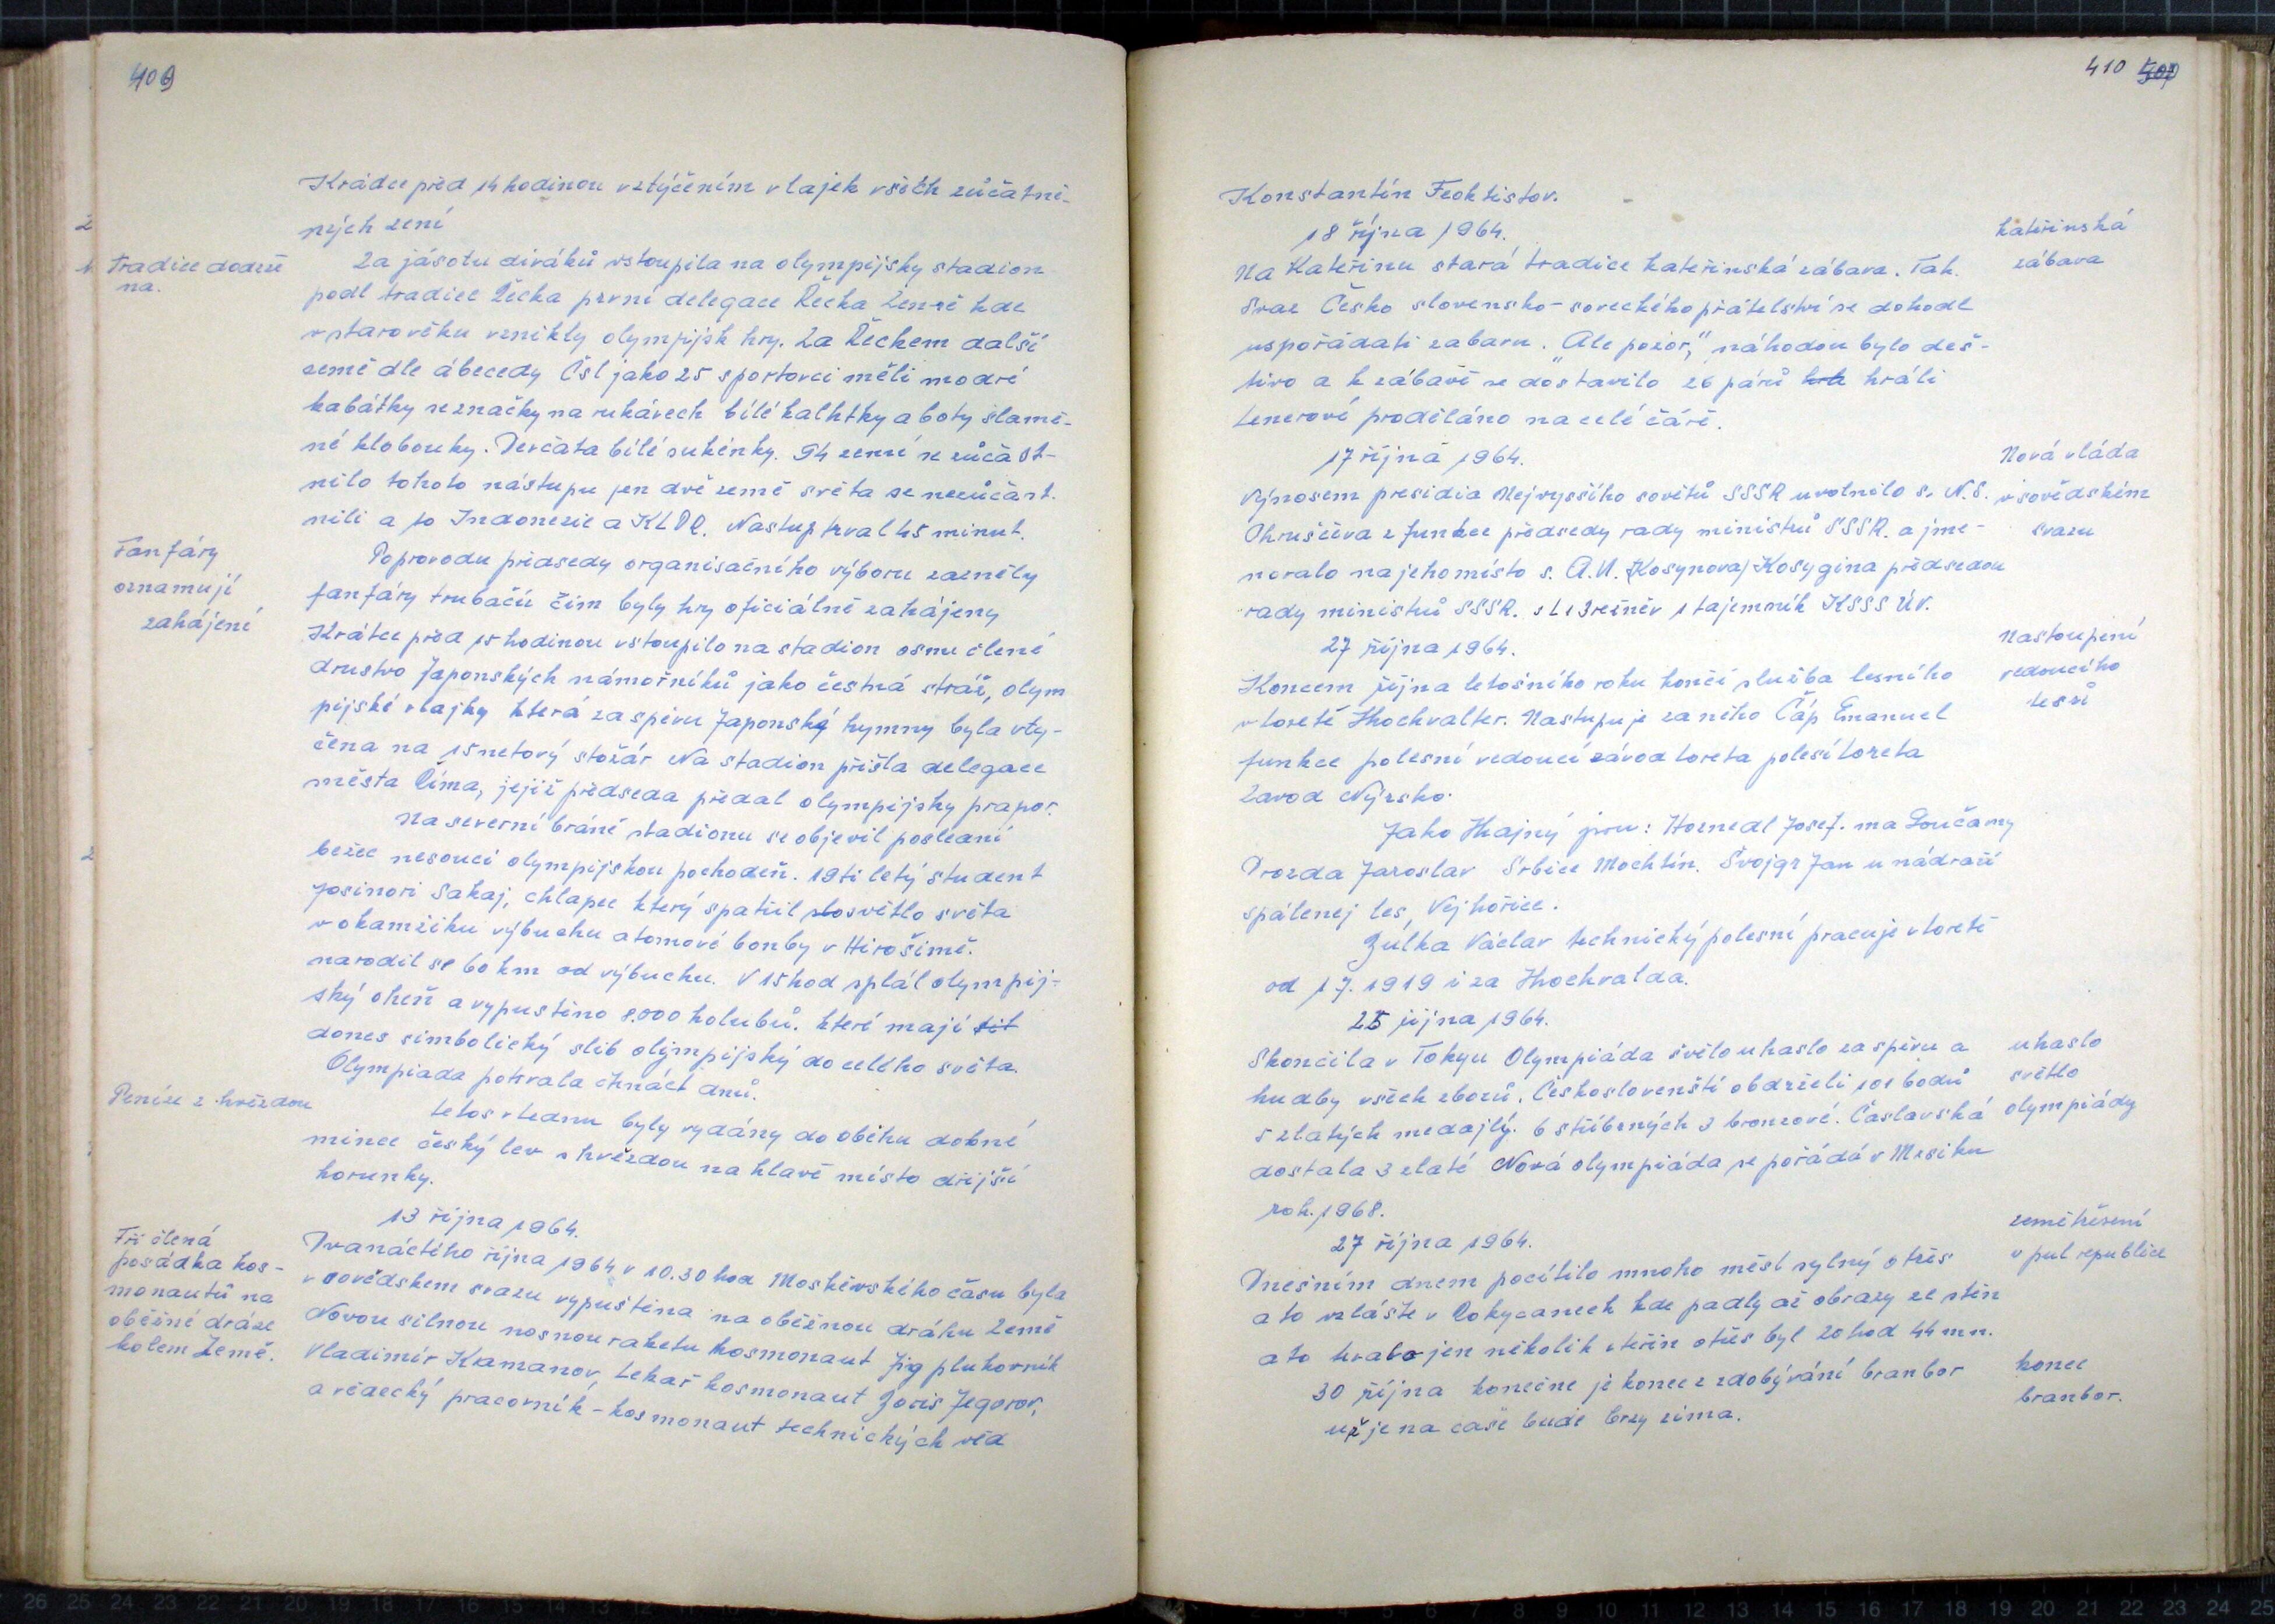 409
Krádce před 14 hodinou vztýčením vlajek všech zůčatně-
ných zení
Tradice dodrže
na.
Za jásotu diváků vstoupila na olympijsky stadion
podl tradice Řecka první delegace Řecka Země kde
v starověku vznikly olympijsk hry. Za Řeckem další
země dle ábecedy Čsl jako 25 sportovci měli modré
kabátky se značky na rukávech bílé kalhtky a boty slamě-
né klobouky. Děvčata bílé sukénky. 94 zemí se zůčast-
nilo tohoto nástupu jen dvě země světa se nezůčast.
nili a to Indonezie a KLDR. Nastup trval 45 minut.
Fanfáry
oznamují
zahájení
Poprovodu předsedy organisačního výboru zazněly
fanfáry trubačů čim byly hry oficiálně zahájeny
Krátce před 15 hodinou vstoupilo na stadion osmi člené
drustvo Japonských námořníků jako čestná stráž, olym
pijské vlajky která za spěvu Japonský hymny byla vty-
čena na 15 netový stožár Na stadion přišla delegace
města Říma, jejiž předseda předal olympijsky prapor.
Na severní bráně stadionu se objevil poslední
bežec nesouci olympijskou pochodeň. 19ti letý student
Josinori Sakaj, chlapec který spatřil slo světlo světa
v okamžiku výbuchu atomové bonby v Hirošimě.
narodil se 60 km od výbuchu. V 15 hod splál olympij-
ský oheň a vypustěno 8.000 holubů. kteří mají sit
dones simbolický slib olijmpijský do celého světa.
Olympiada potrvala čtnáct dnů.
Peníze z hvězdou
letos v lednu byly vydány do oběhu dobné
mince český lev s hvězdou na hlavě místo dřijší
korunky.
13 října 1964.
Tří člená
posádka kos-
monautů na
oběžné dráze
kolem Země.
Dvanáctého října 1964 v 10.30 hod Moskěvského času byla
v sovědskem svazu vypuštěna na oběžnou dráhu Země
Novou silnou nosnou raketu kosmonaut Jig plukovník
Vladimír Kamanov, Lekař kosmonaut Boris Jegorov,
a vědecký pracovník - kosmonaut technických věd
410 409
Konstantín Feoktistov.
18 října 1964.
kateřinská
zábava
Na Kateřinu stará tradice kateřinská zábava. Tak.
Svaz Česko slovensko-soveckého přátelství se dohodl
uspořádati zabavu. "Ale pozor," náhodou bylo deš-
tivo a k zábavě se dostavilo 26 párů hrá hráli
Lenerové proděláno na celé čáře.
17 října 1964.
Nová vláda
v sovědském
svazu
Výnosem presidia Nejvyššího sovětů SSSR uvolnilo s. N.S.
Chruščěva z funkce předsedy rady ministrů SSSR. a jme-
novalo na jeho místo s. A.N. (Kosynova) Kosygina předsedou
rady ministrů SSSR. s L i Brežněv 1 tajemník KSSS ÚV.
27 října 1964.
Nastoupení
vedoucího
lesů
Koncem října letošního roku končí služba lesního
v loretě Hochvalter. Nastupuje za něho Čáp Emanuel
funkce polesní vedoucí závod loreta polesí loreta
Zavod Nýrsko.
Jako Hajný jsou: Hoznedl Josef. na Loučany
Drozda Jaroslav Srbice Mochtín. Švojgr Jan u nádraží
spálenej les, Vejhořice.
Zůlka Václav technický polesní pracuje v loretě
od 1 7. 1919 i za Hochvalda.
25 října 1964.
uhaslo
světlo
olympiády
Skončila v Tokyu Olympiáda světlo uhaslo za spěvu a
hudby všech zborů. Českoslovenští obdrželi 101 bodů
5 zlatých medajlý. 6 stříbrných 3 bronzové. Časlavská
dostala 3 zlaté Nová olympiáda se pořádá v Mesiku
rok. 1968.
27 října 1964.
zemětřesení
v pul republice
Dnešním dnem pocítilo mnoho měst sylný otřes
a to vzláště v Rokycanech kde padly až obrazy ze stěn
a to trvalo jen několik vteřin otřes byl 20 hod 44 mn.
konec
branbor.
30 října konečne je konec z zdobývání branbor
už je na čase bude brzy zima.